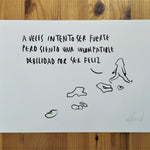 A VECES INTENTO SER FUERTE
PERO SIENTO UNA INCOMPATIBLE
DEBILIDAD POR SER FELIZ